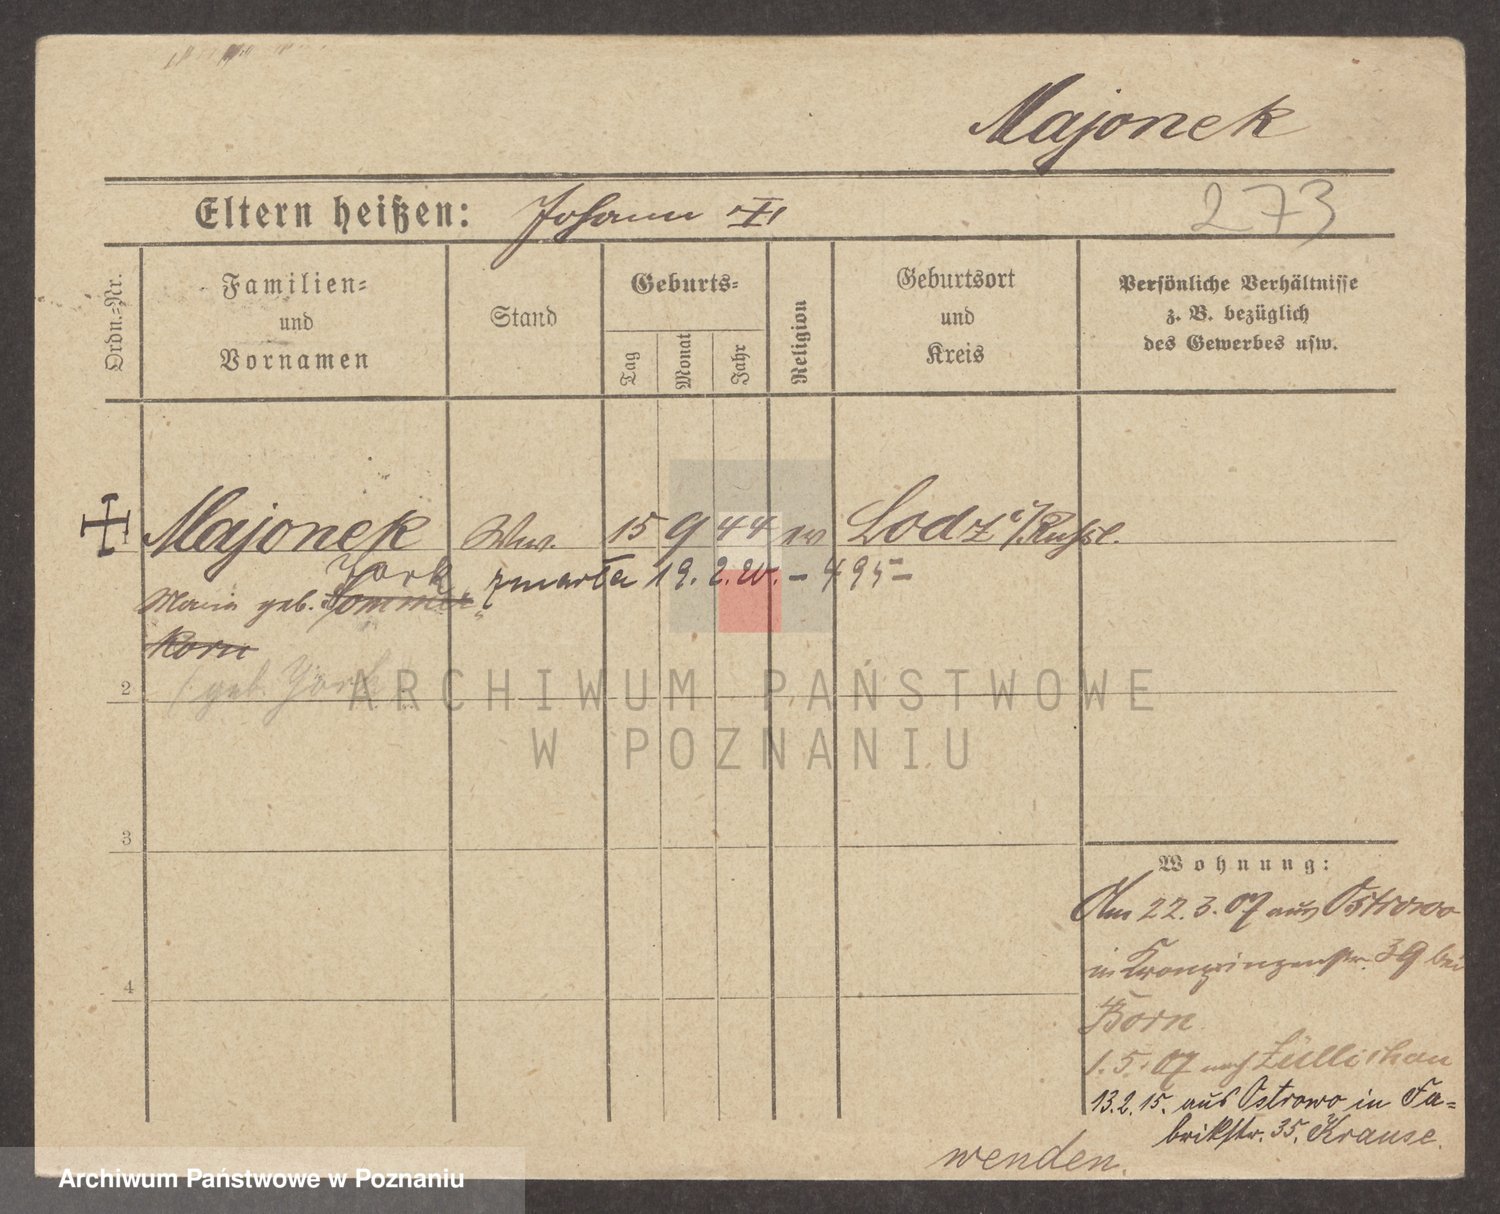 Majonek
Eltern heißen: Johann
273
Ordn.-Nr.
Familien-
und
Vornamen
Stand
Geburts-
Tag
Monat
Jahr
Religion
Geburtsort
und
Kreis
Persönliche Verhältnisse
z. B. bezüglich
des Gewerbes usw.
Majonek Ww. 15 9 44 ev Lodz i/Rußl.
York
Maria geb. Sommer
zmarła 19.2.20. – 495 –
korn
(geb. York
2
3
4
Wohnung:
Am 22.3.07 aus Ostrowo
in Kronprinzenstr. 39 bei
Born
1.5.07 nach Züllichau
13.2.15. aus Ostrowo in Fa-
brikstr. 35. Krause.
wenden.
ARCHIWUM PAŃSTWOWE
W POZNANIU
Archiwum Państwowe w Poznaniu